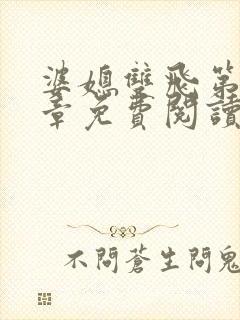 婆媳雙飛第
章免費閱讀
不問蒼生問鬼